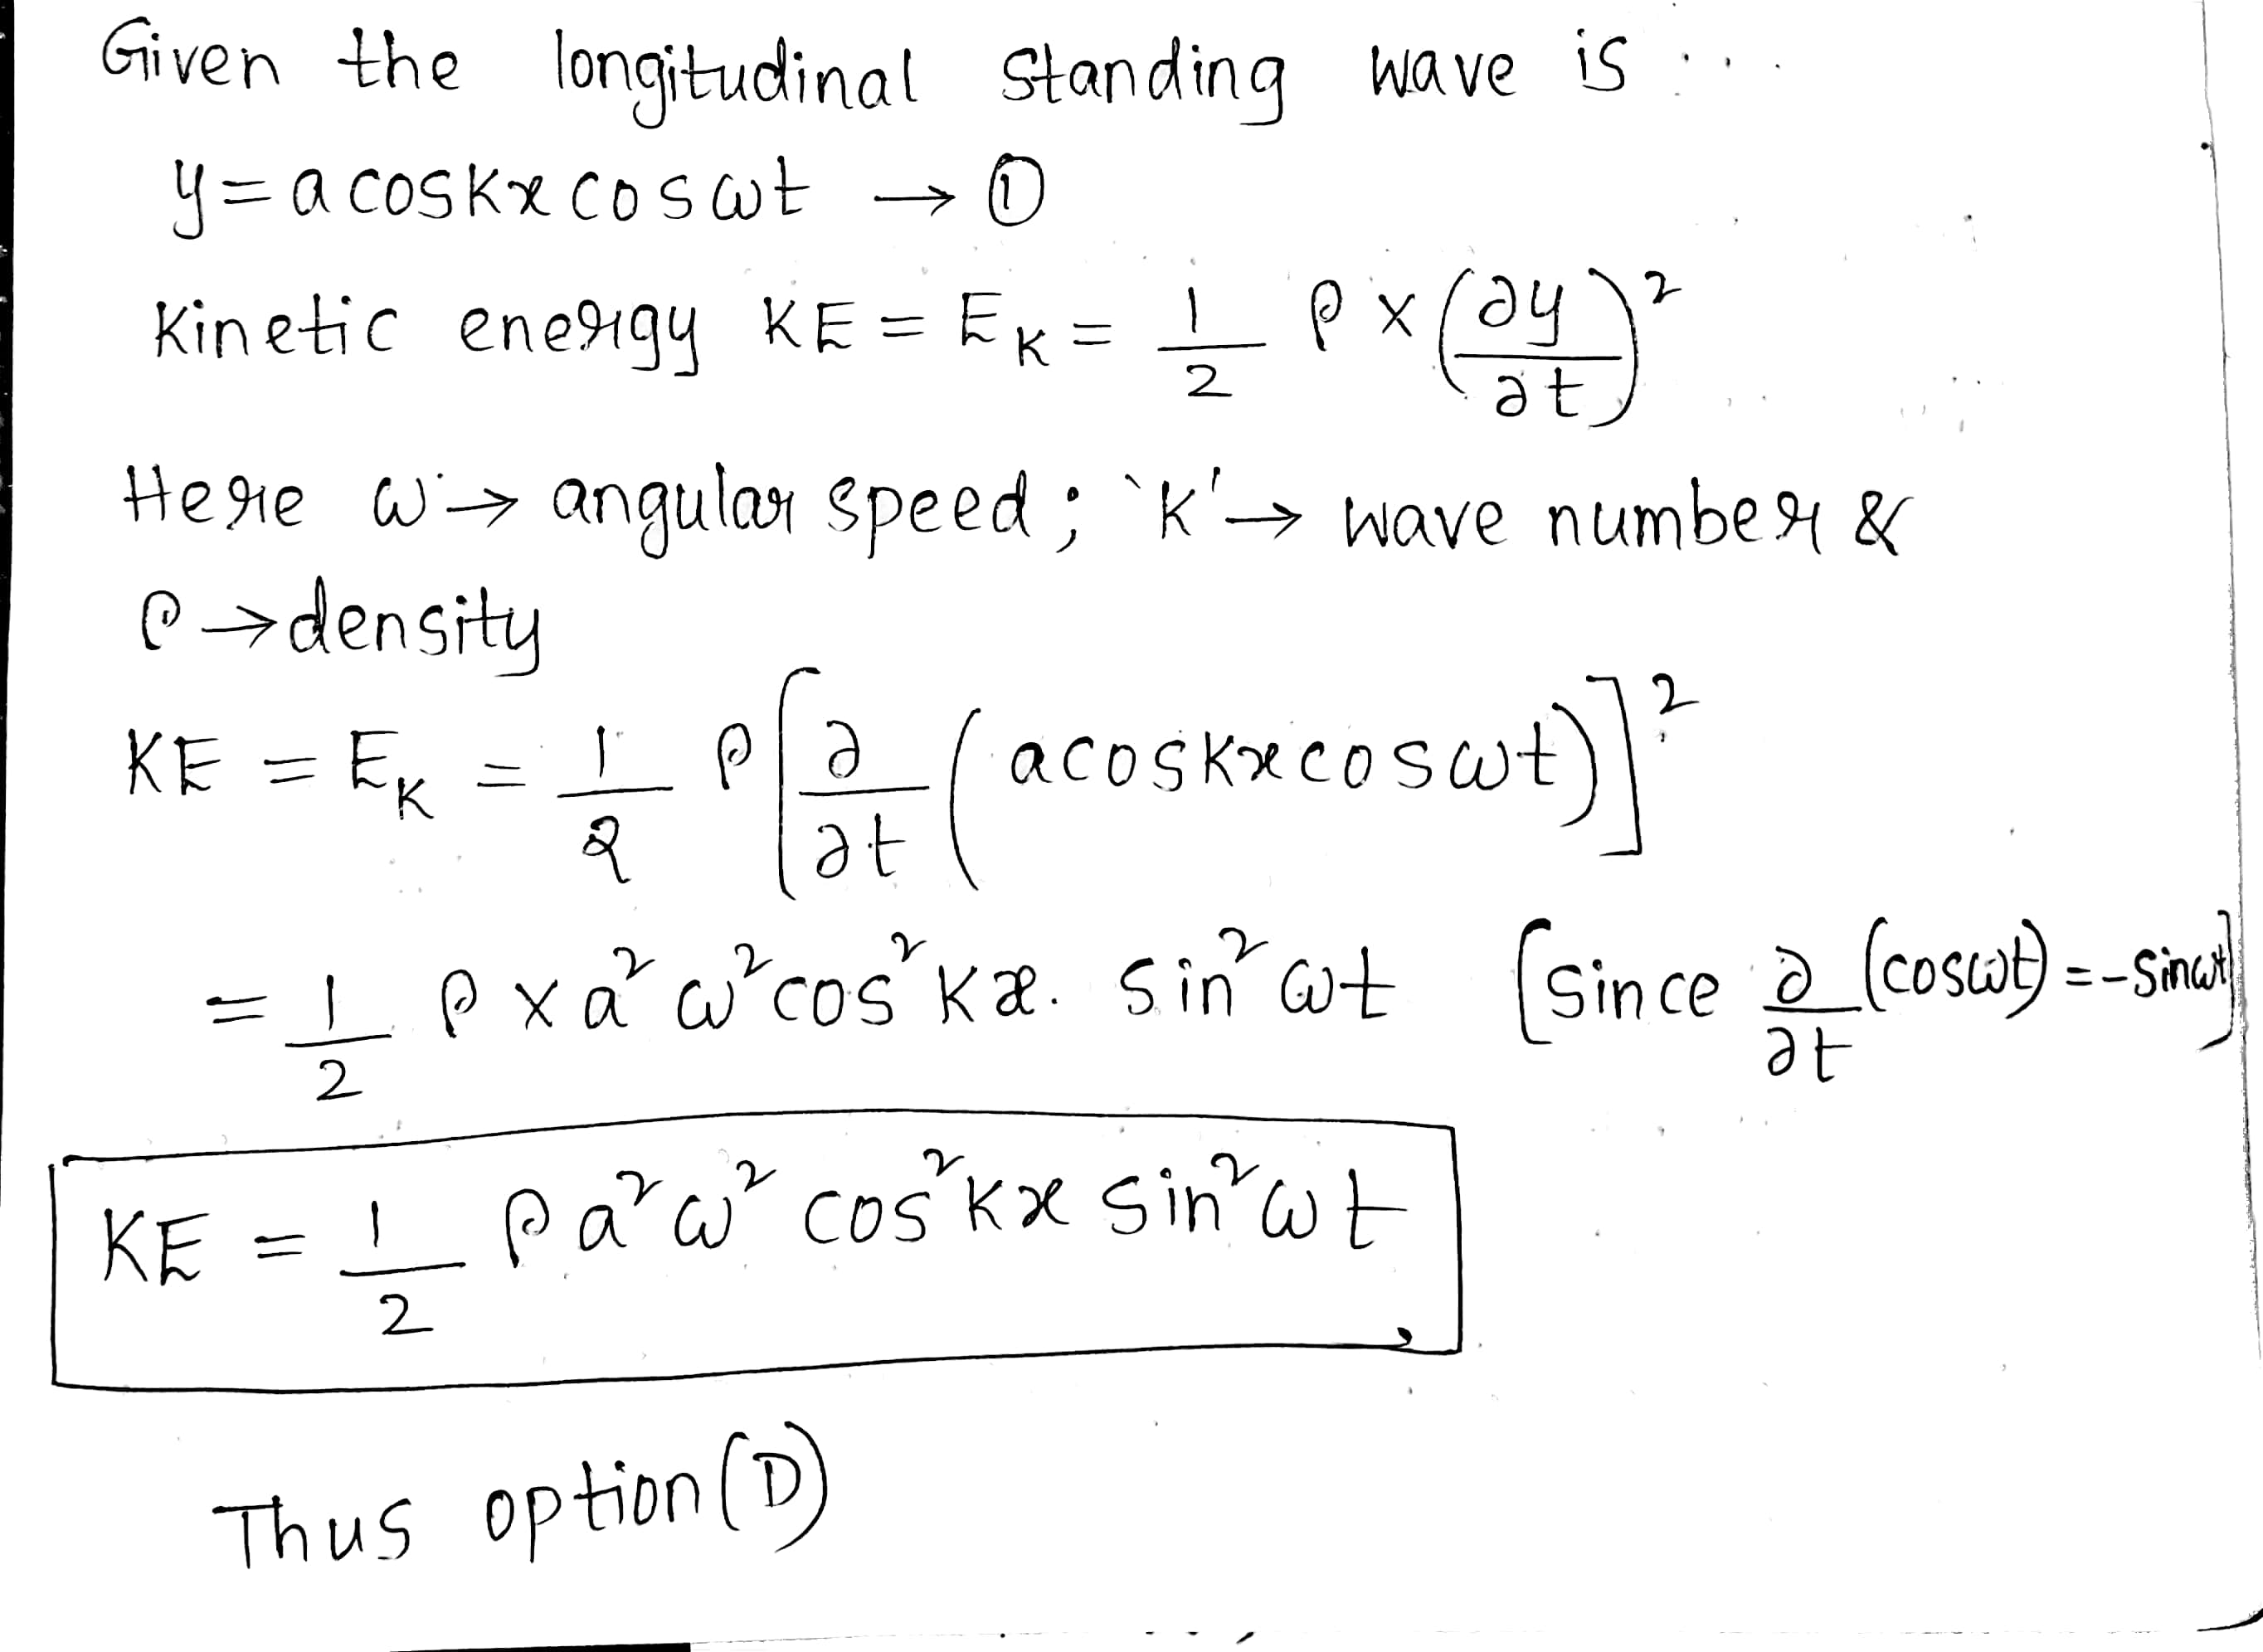 Given the longitudinal standing wave is
y = a cos kx cos ωt → ①
Kinetic energy KE = E_K = 1/2 ρ × (∂y/∂t)²
Here ω → angular speed; 'K' → wave number &
ρ → density
KE = E_K = 1/2 ρ [∂/∂t (a cos kx cos ωt)]²
= 1/2 ρ × a² ω² cos² kx . sin² ωt [since ∂/∂t (cos ωt) = - sin ωt]
KE = 1/2 ρ a² ω² cos² kx sin² ωt
Thus option (D)